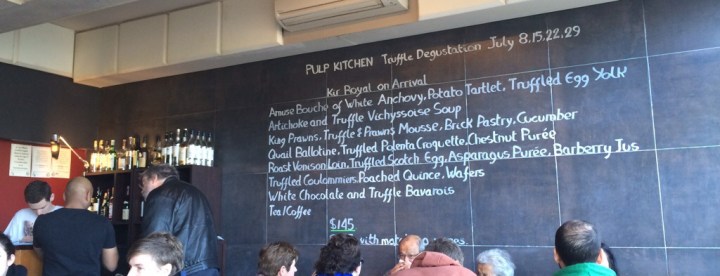 PULP KITCHEN Truffle Degustation July 8,15,22,29
Kir Royal on Arrival
Amuse Bouche of White Anchovy, Potato Tartlet, Truffled Egg Yolk
Artichoke and Truffle Vichyssoise Soup
King Prawns, Truffle & Prawns Mousse, Brick Pastry, Cucumber
Quail Ballotine, Truffled Polenta Croquette, Chestnut Purée
Roast Venison Loin, Truffled Scotch Egg, Asparagus Purée, Barberry Jus
Truffled Coulommiers, Poached Quince, Wafers
White Chocolate and Truffle Bavarois
Tea/Coffee
$145
with